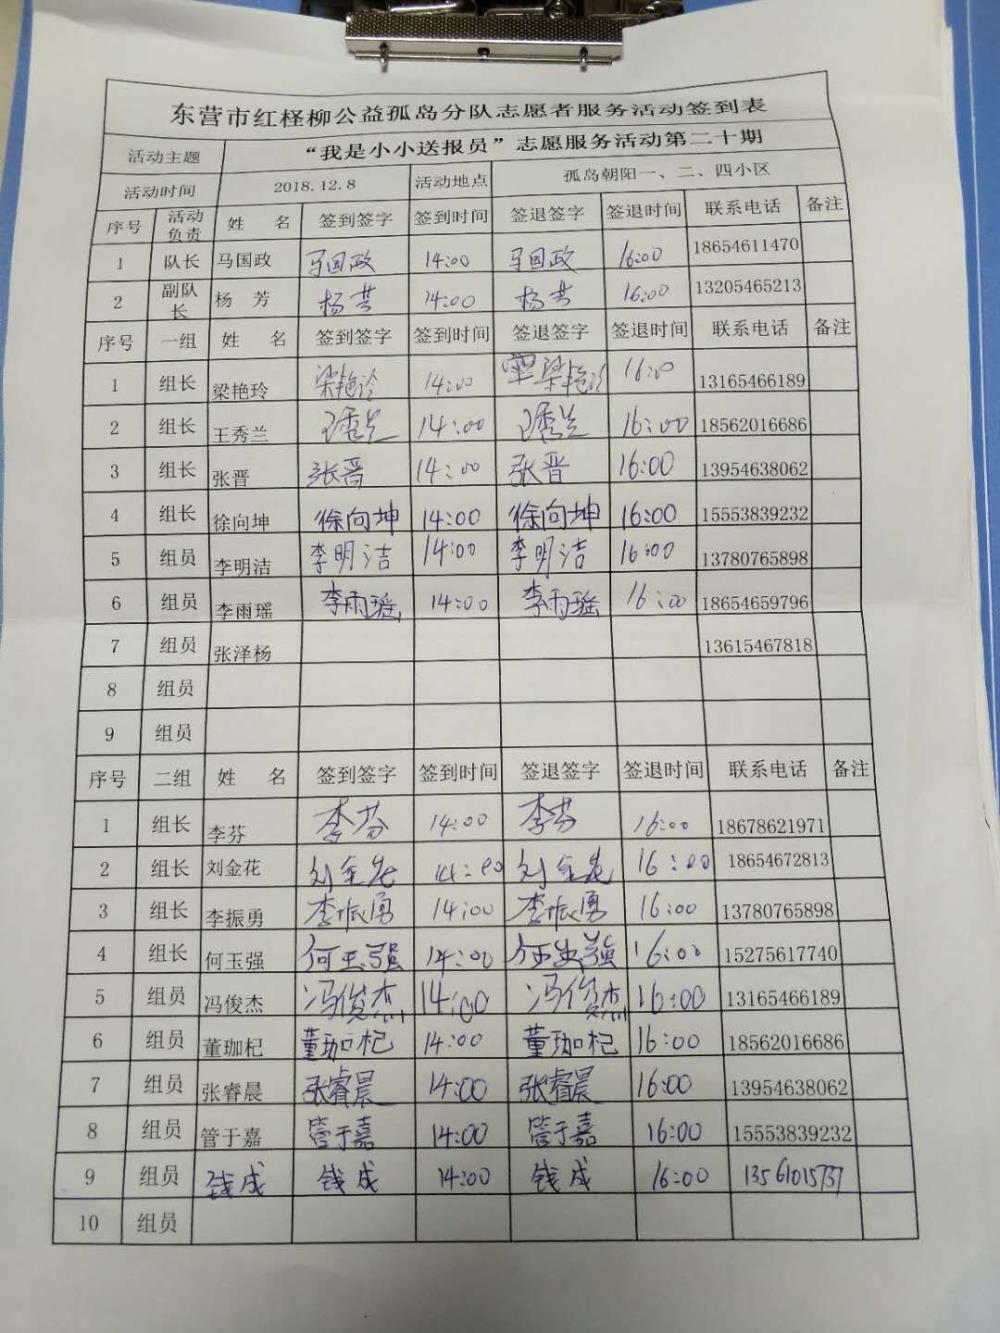 东营市红柽柳公益孤岛分队志愿者服务活动签到表
活动主题 “我是小小送报员”志愿服务活动第二十期
活动时间 2018.12.8 活动地点 孤岛朝阳一、二、四小区
序号 活动负责 姓 名 签到签字 签到时间 签退签字 签退时间 联系电话 备注
1 队长 马国政 马国政 14:00 马国政 16:00 18654611470
2 副队长 杨 芳 杨芳 14:00 杨芳 16:00 13205465213
序号 一组 姓 名 签到签字 签到时间 签退签字 签退时间 联系电话 备注
1 组长 梁艳玲 梁艳玲 14:00 梁艳玲 16:00 13165466189
2 组长 王秀兰 王秀兰 14:00 王秀兰 16:00 18562016686
3 组长 张晋 张晋 14:00 张晋 16:00 13954638062
4 组长 徐向坤 徐向坤 14:00 徐向坤 16:00 15553839232
5 组员 李明洁 李明洁 14:00 李明洁 16:00 13780765898
6 组员 李雨瑶 李雨瑶 14:00 李雨瑶 16:00 18654659796
7 组员 张泽杨 13615467818
8 组员
9 组员
序号 二组 姓 名 签到签字 签到时间 签退签字 签退时间 联系电话 备注
1 组长 李芬 李芬 14:00 李芬 16:00 18678621971
2 组长 刘金花 刘金花 14:00 刘金花 16:00 18654672813
3 组长 李振勇 李振勇 14:00 李振勇 16:00 13780765898
4 组长 何玉强 何玉强 14:00 何玉强 16:00 15275617740
5 组员 冯俊杰 冯俊杰 14:00 冯俊杰 16:00 13165466189
6 组员 董珈杞 董珈杞 14:00 董珈杞 16:00 18562016686
7 组员 张睿晨 张睿晨 14:00 张睿晨 16:00 13954638062
8 组员 管于嘉 管于嘉 14:00 管于嘉 16:00 15553839232
9 组员 钱成 钱成 14:00 钱成 16:00 13561015737
10 组员